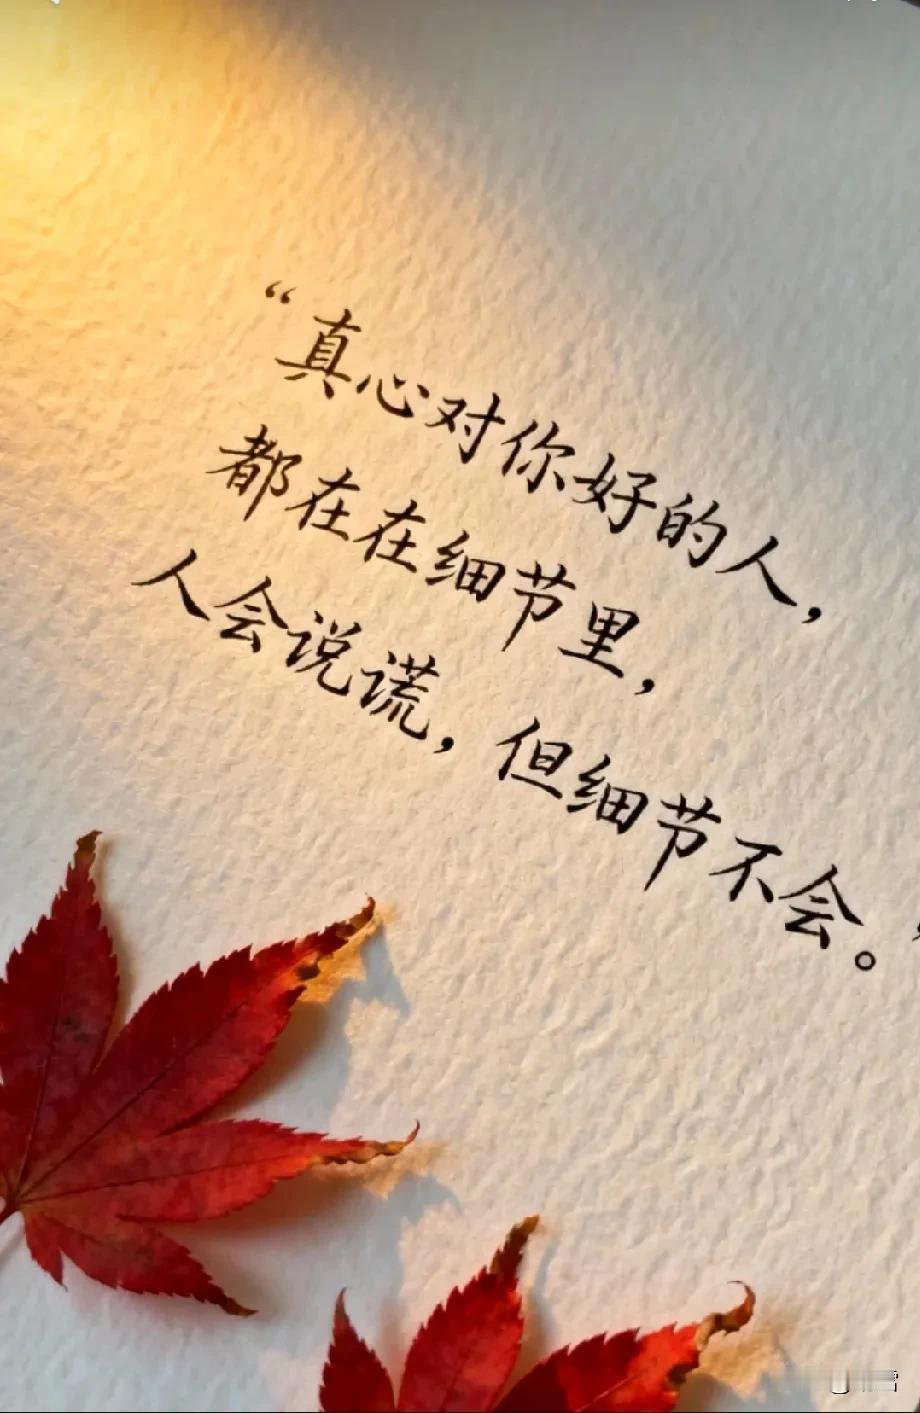 “真心对你好的人，
都在在细节里，
人会说谎，但细节不会。”